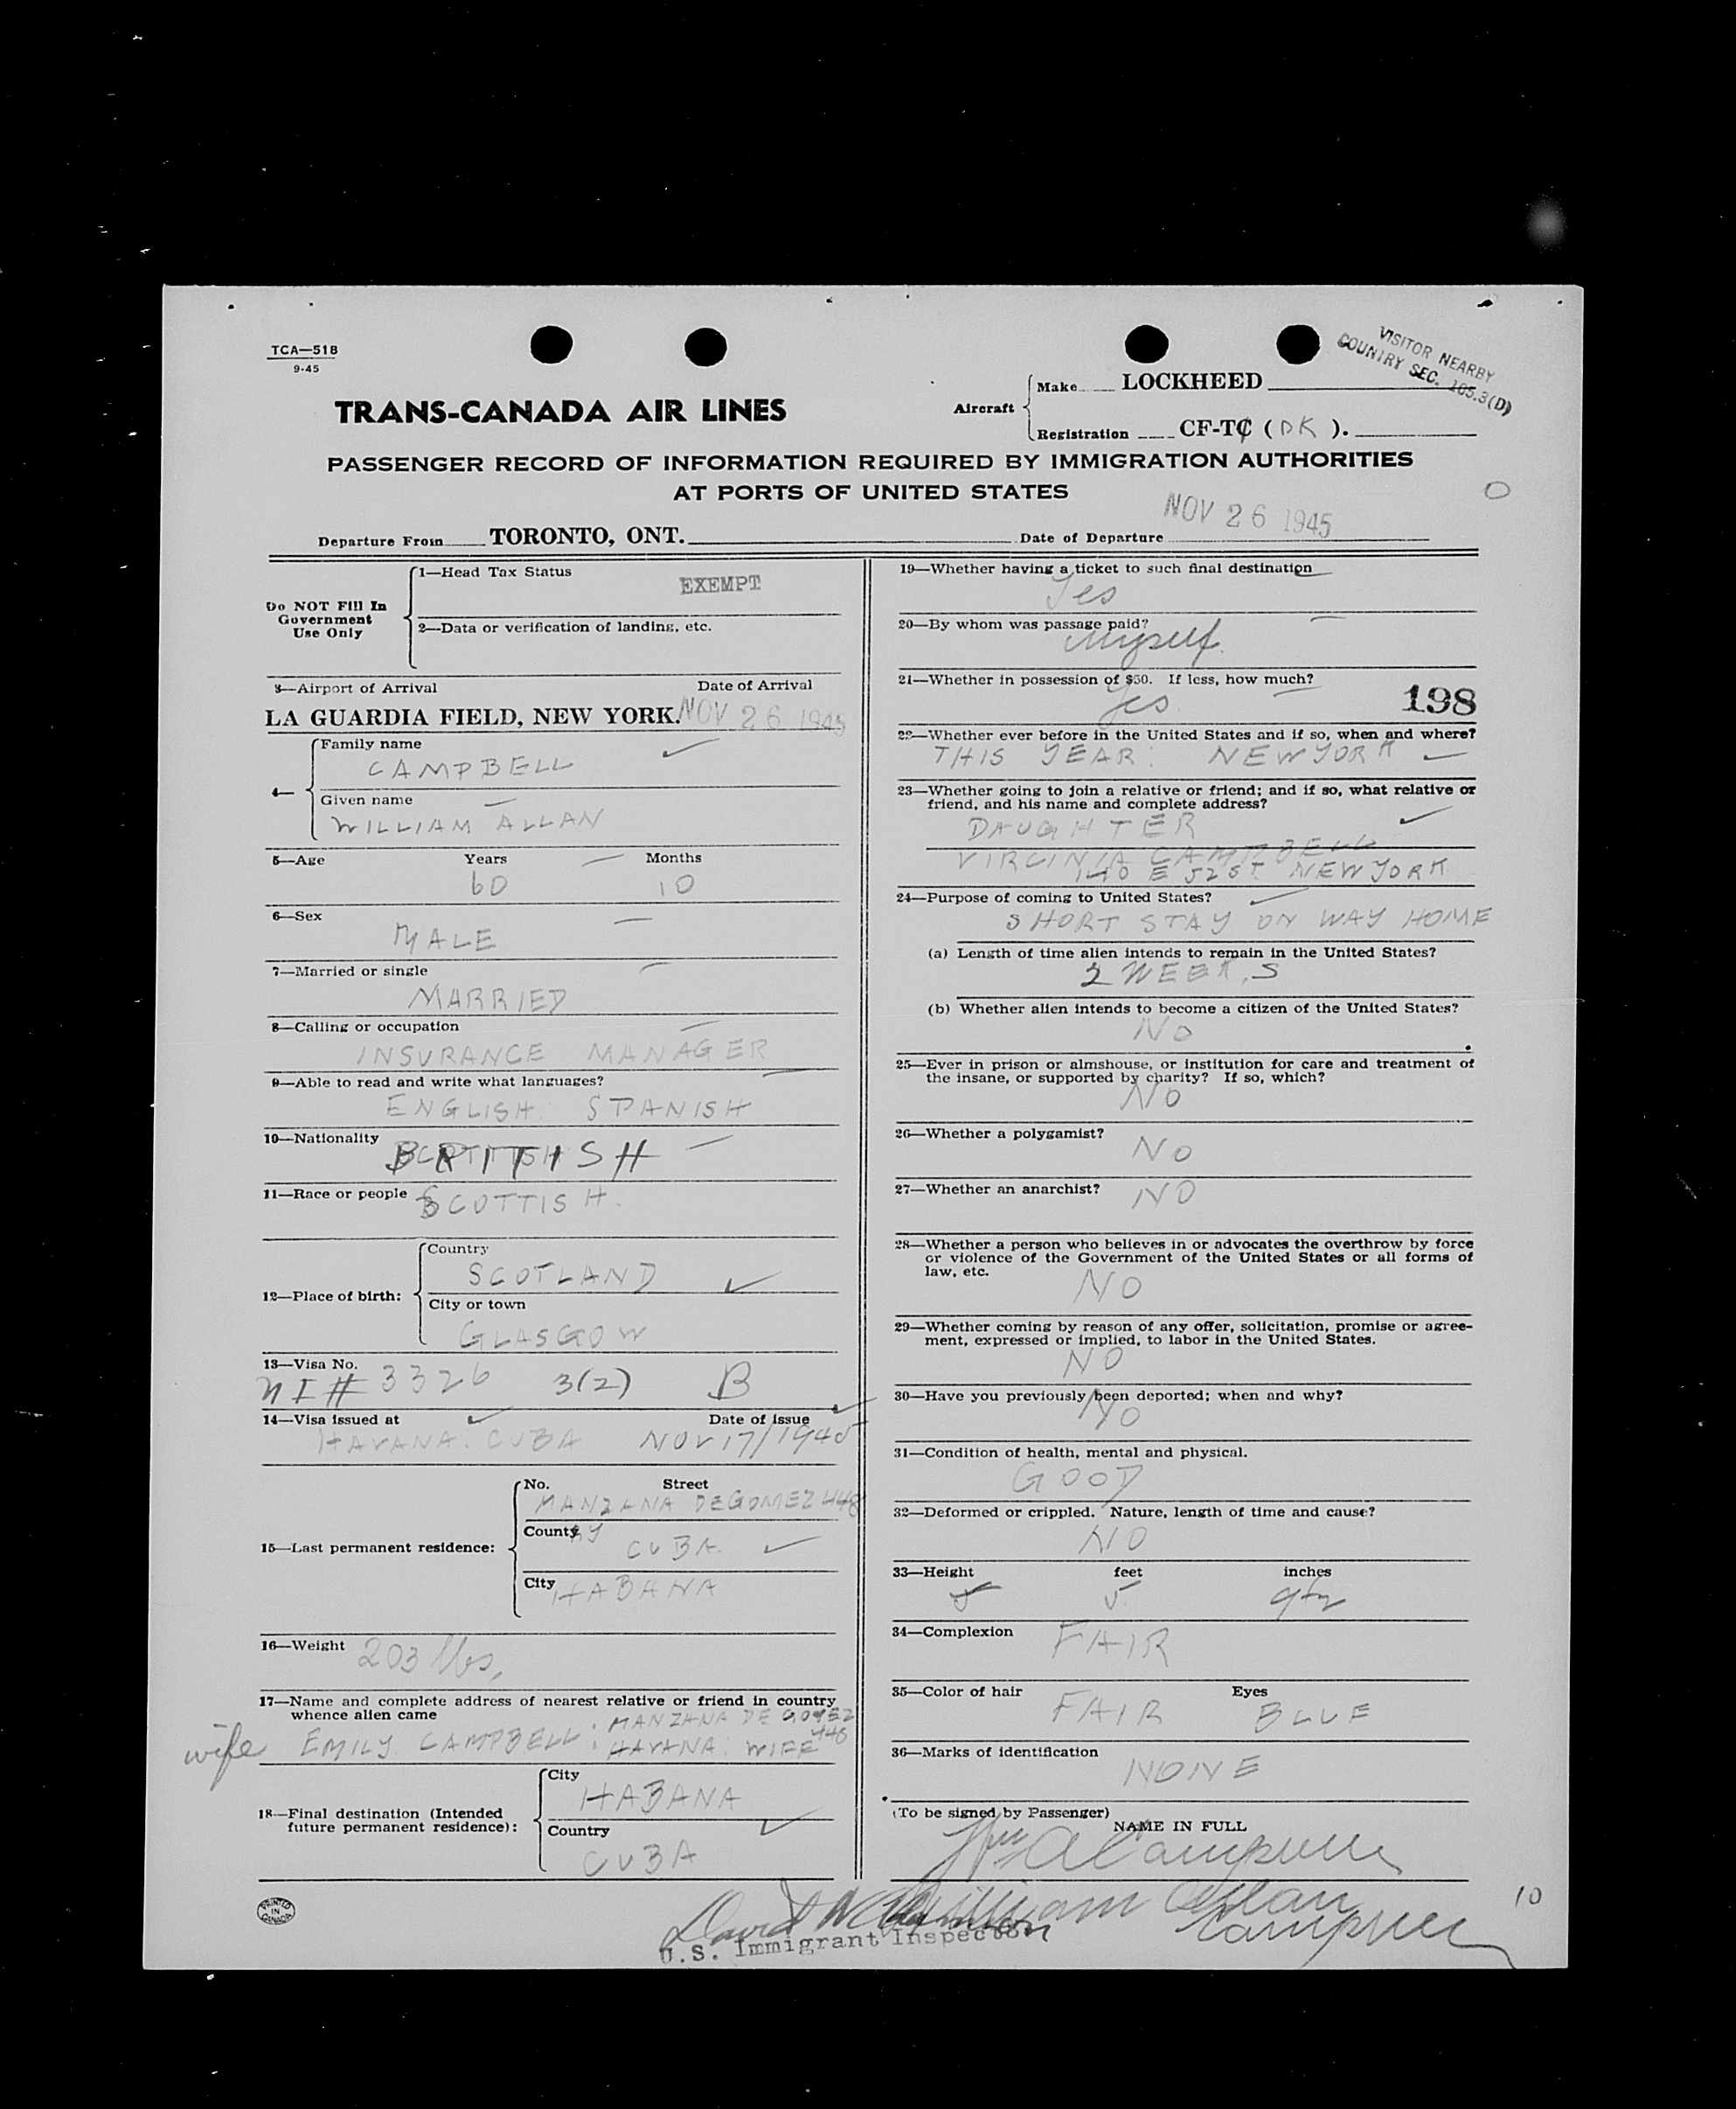 TCA—518
9-45
VISITOR NEARBY
COUNTRY SEC. 165.3(D)
TRANS-CANADA AIR LINES
Aircraft
Make LOCKHEED
Registration CF-TC (DK).
PASSENGER RECORD OF INFORMATION REQUIRED BY IMMIGRATION AUTHORITIES
AT PORTS OF UNITED STATES
Departure From TORONTO, ONT. Date of Departure NOV 26 1945
Do NOT Fill In
Government
Use Only
1—Head Tax Status EXEMPT
2—Data or verification of landing, etc.
3—Airport of Arrival Date of Arrival
LA GUARDIA FIELD, NEW YORK. NOV 26 1945
4—
Family name
CAMPBELL
Given name
WILLIAM ALLAN
5—Age Years Months
60 10
6—Sex
MALE
7—Married or single
MARRIED
8—Calling or occupation
INSURANCE MANAGER
9—Able to read and write what languages?
ENGLISH SPANISH
10—Nationality BRITISH
11—Race or people SCOTTISH.
12—Place of birth:
Country
SCOTLAND
City or town
GLASGOW
13—Visa No.
NI# 3326 3(2) B
14—Visa issued at Date of issue
HAVANA. CUBA NOV 17/1945
15—Last permanent residence:
No. Street
MANZANA DE GOMEZ 448
County
CUBA
City HABANA
16—Weight 203 lbs,
17—Name and complete address of nearest relative or friend in country
whence alien came
wife EMILY CAMPBELL: MANZANA DE GOMEZ 448
HAVANA: WIFE
18—Final destination (Intended
future permanent residence):
City
HABANA
Country
CUBA
PRINTED
IN
CANADA
19—Whether having a ticket to such final destination
Yes
20—By whom was passage paid?
Myself.
21—Whether in possession of $50. If less, how much?
Yes
198
22—Whether ever before in the United States and if so, when and where?
THIS YEAR: NEW YORK
23—Whether going to join a relative or friend; and if so, what relative or
friend, and his name and complete address?
DAUGHTER
VIRGINIA CAMPBELL
140 E 52 ST. NEW YORK
24—Purpose of coming to United States?
SHORT STAY ON WAY HOME
(a) Length of time alien intends to remain in the United States?
2 WEEKS
(b) Whether alien intends to become a citizen of the United States?
NO
25—Ever in prison or almshouse, or institution for care and treatment of
the insane, or supported by charity? If so, which?
NO
26—Whether a polygamist?
NO
27—Whether an anarchist? NO
28—Whether a person who believes in or advocates the overthrow by force
or violence of the Government of the United States or all forms of
law, etc.
NO
29—Whether coming by reason of any offer, solicitation, promise or agree-
ment, expressed or implied, to labor in the United States.
NO
30—Have you previously been deported; when and why?
NO
31—Condition of health, mental and physical.
GOOD
32—Deformed or crippled. Nature, length of time and cause?
NO
33—Height feet inches
5 5
34—Complexion FAIR
35—Color of hair Eyes
FAIR BLUE
36—Marks of identification
NONE
(To be signed by Passenger)
NAME IN FULL
Wm A Campbell
William Allan
Campbell
10
David
U.S. Immigrant Inspector